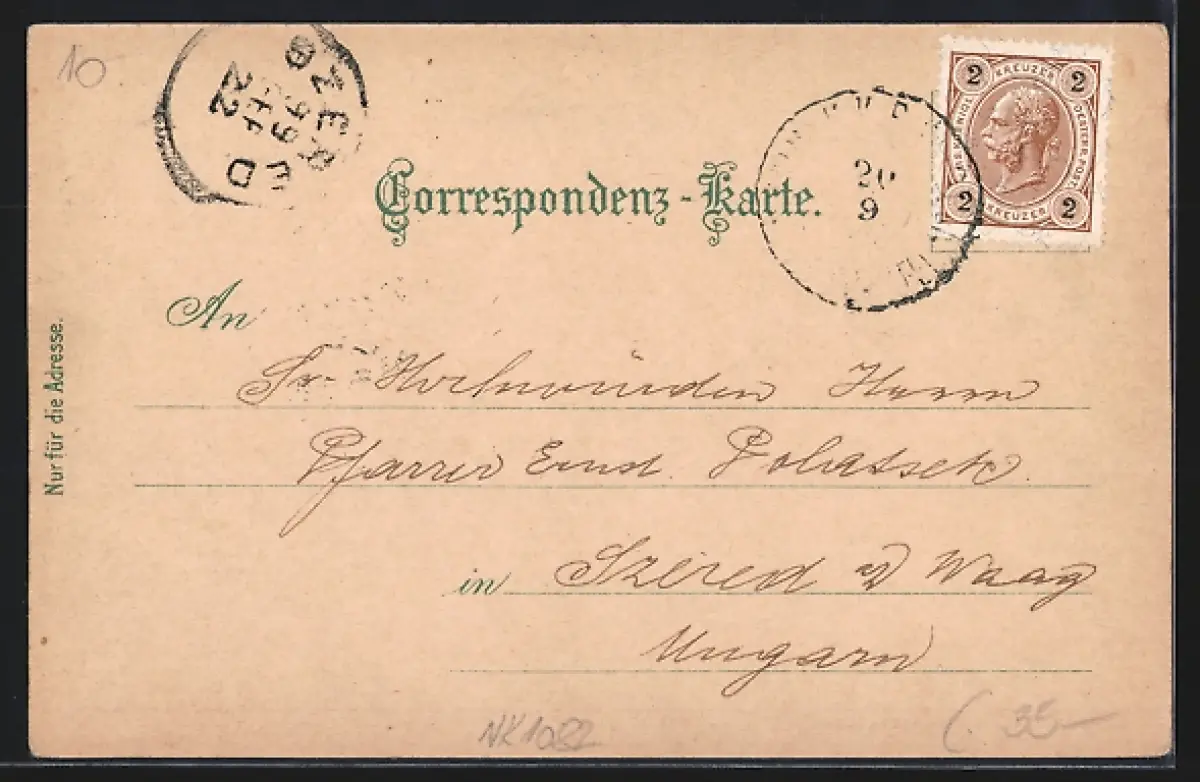 10
SZERED
99
22
D
Correspondenz-Karte.
20
9
2 KREUZER 2
KAIS. KÖNIGL. OESTERR. POST.
2 KREUZER 2
An
Sr. Hochwürden Herrn
Pfarrer Polatsek
in Szered a/d Waag
Ungarn
Nur für die Adresse.
NK1082
35-